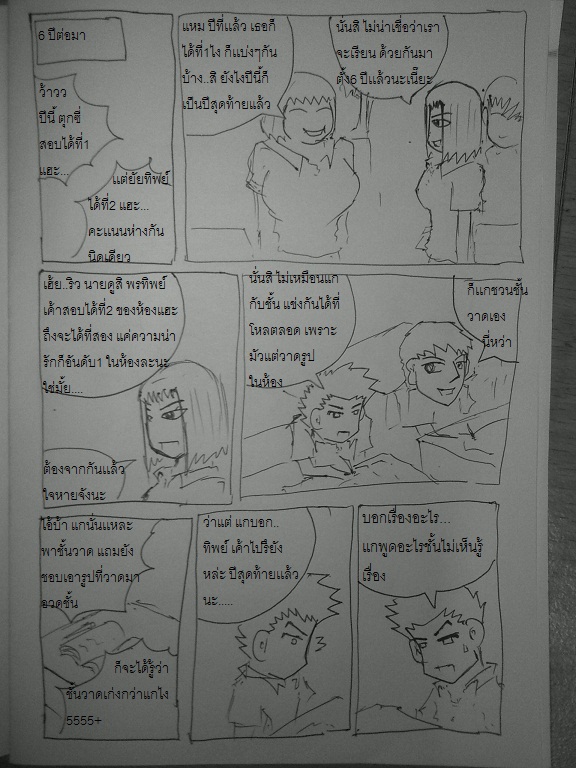 6 ปีต่อมา
ว้าวว
ปีนี้ ตุกซี่
สอบได้ที่1
แฮะ...
แต่ยัยทิพย์
ได้ที่2 แฮะ...
คะแนนห่างกัน
นิดเดียว
แหม ปีที่แล้ว เธอก็
ได้ที่1ไง ก็แบ่งๆกัน
บ้าง..สิ ยังไงปีนี้ก็
เป็นปีสุดท้ายแล้ว
นั่นสิ ไม่น่าเชื่อว่าเรา
จะเรียน ด้วยกันมา
ตั้ง6 ปีแล้วนะเนี๊ยะ
เฮ้ย..ริว นายดูสิ พรทิพย์
เค้าสอบได้ที่2 ของห้องแฮะ
ถึงจะได้ที่สอง แค่ความน่า
รักก็อันดับ1 ในห้องละนะ
ใช่มั้ย....
ต้องจากกันแล้ว
ใจหายจังนะ
นั่นสิ ไม่เหมือนแก
กับชั้น แข่งกันได้ที่
โหลตลอด เพราะ
มัวแต่วาดรูป
ในห้อง
ก็แกชวนชั้น
วาดเอง
นี่หว่า
ไอ้บ้า แกนั่นแหละ
พาชั้นวาด แถมยัง
ชอบเอารูปที่วาดมา
อวดชั้น
ก็จะได้รู้ว่า
ชั้นวาดเก่งกว่าแกไง
5555+
ว่าแต่ แกบอก..
ทิพย์ เค้าไปรึยัง
หล่ะ ปีสุดท้ายแล้ว
นะ.....
บอกเรื่องอะไร...
แกพูดอะไรชั้นไม่เห็นรู้
เรื่อง